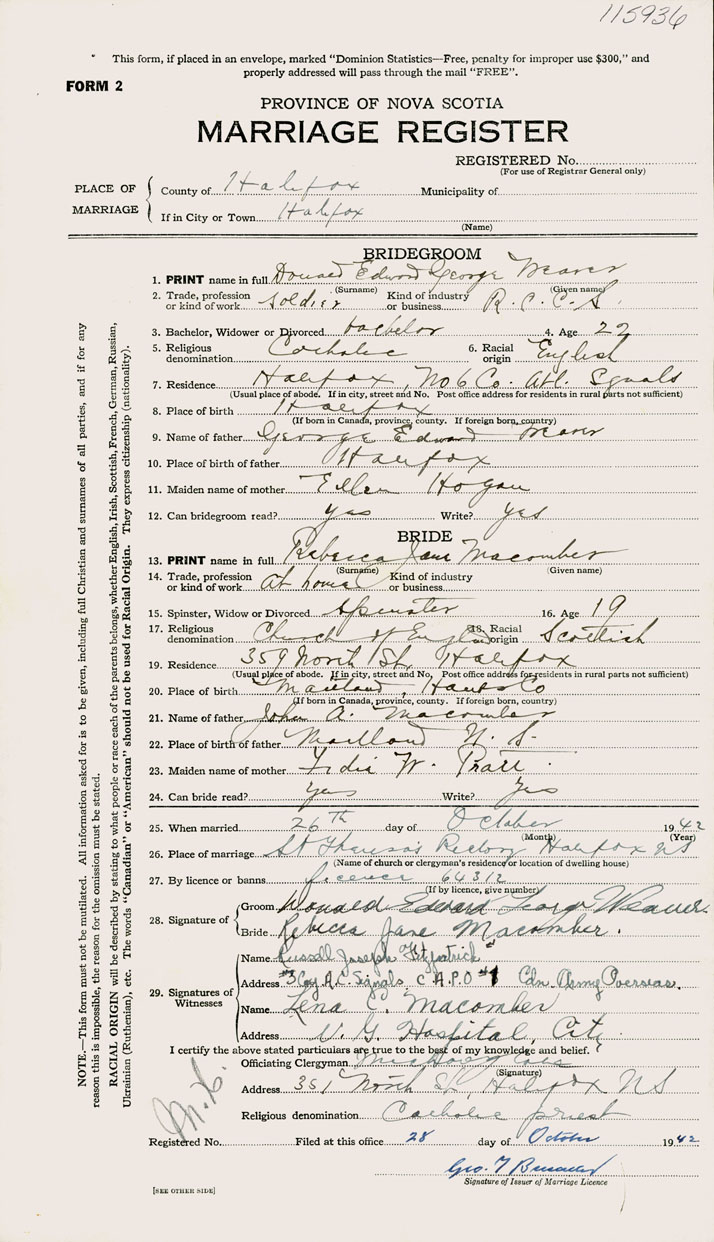 115936
" This form, if placed in an envelope, marked "Dominion Statistics—Free, penalty for improper use $300," and
properly addressed will pass through the mail "FREE".
FORM 2
PROVINCE OF NOVA SCOTIA
MARRIAGE REGISTER
REGISTERED No.
(For use of Registrar General only)
PLACE OF MARRIAGE
County of Halifax Municipality of
If in City or Town Halifax
(Name)
BRIDEGROOM
1. PRINT name in full Donald Edward George Weaver
(Surname) (Given name)
2. Trade, profession or kind of work Soldier Kind of industry or business R. C. C. S.
3. Bachelor, Widower or Divorced bachelor 4. Age 22
5. Religious denomination Catholic 6. Racial origin English
7. Residence Halifax, No 6 Co. Atl. Signals
(Usual place of abode. If in city, street and No. Post office address for residents in rural parts not sufficient)
8. Place of birth Halifax
(If born in Canada, province, county. If foreign born, country)
9. Name of father George Edward Weaver
10. Place of birth of father Halifax
11. Maiden name of mother Ellen Hogan
12. Can bridegroom read? yes Write? yes
BRIDE
13. PRINT name in full Rebecca Jane Macomber
(Surname) (Given name)
14. Trade, profession or kind of work at home Kind of industry or business
15. Spinster, Widow or Divorced Spinster 16. Age 19
17. Religious denomination Church of England 18. Racial origin Scottish
19. Residence 359 North St. Halifax
(Usual place of abode. If in city, street and No. Post office address for residents in rural parts not sufficient)
20. Place of birth Maitland, Hants Co
(If born in Canada, province, county. If foreign born, country)
21. Name of father John A. Macomber
22. Place of birth of father Maitland N. S.
23. Maiden name of mother W. Pratt
24. Can bride read? Yes Write? Yes
25. When married 26th day of October 1942
(Month) (Year)
26. Place of marriage St Theresa's Rectory Halifax NS
(Name of church or clergyman's residence or location of dwelling house)
27. By licence or banns licence 64312
(If by licence, give number)
28. Signature of
Groom Donald Edward George Weaver
Bride Rebecca Jane Macomber.
29. Signatures of Witnesses
Name Russell Joseph Fitzpatrick
Address Coy A.C. Signals, C.A.P.O #1 Cdn. Army Overseas.
Name Lena C. Macomber
Address V. G. Hospital, City
I certify the above stated particulars are true to the best of my knowledge and belief.
Officiating Clergyman
(Signature)
Address 351 North St, Halifax NS
Religious denomination Catholic priest
Registered No. Filed at this office 28 day of October 1942
Geo.
Signature of Issuer of Marriage Licence
[SEE OTHER SIDE]
NOTE.—This form must not be mutilated. All information asked for is to be given, including full Christian and surnames of all parties, and if for any
reason this is impossible, the reason for the omission must be stated.
RACIAL ORIGIN will be described by stating to what people or race each of the parents belongs, whether English, Irish, Scottish, French, German, Russian,
Ukrainian (Ruthenian), etc. The words "Canadian" or "American" should not be used for Racial Origin. They express citizenship (nationality).